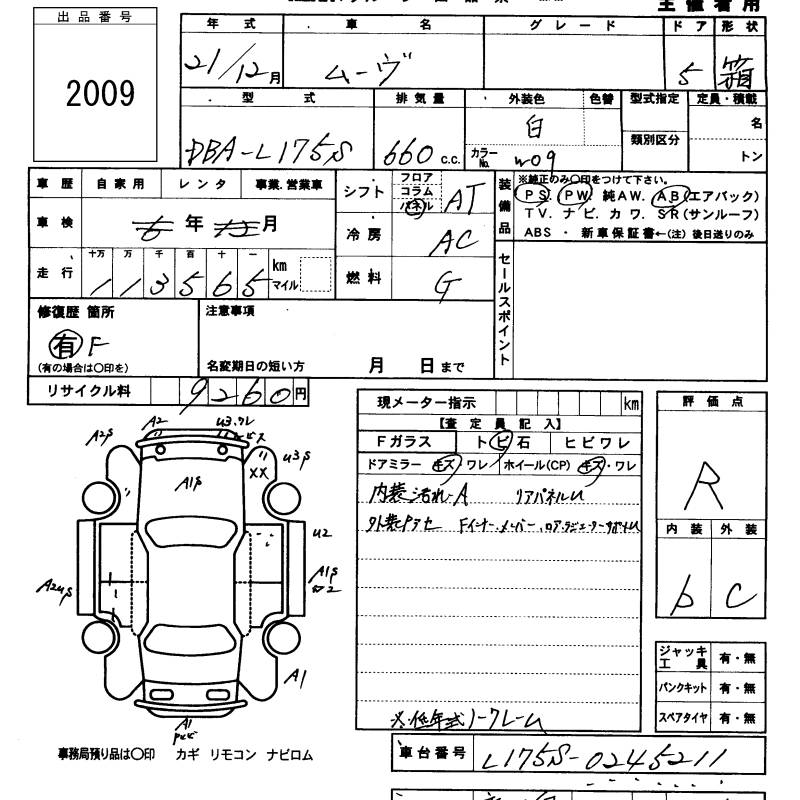 主催者用
出品番号
2009
年式 車名 グレード ドア 形状
21/12月 ムーヴ 5 箱
型式 排気量 外装色 色替 型式指定 定員・積載
DBA-L175S 660 c.c. 白 類別区分 名
カラーNo. W09 トン
車歴 自家用 レンタ 事業.営業車
車検 6年12月
走行 十万 万 千 百 十 一 km マイル
113565
シフト フロア コラム パネル AT
冷房 AC
燃料 G
装備品
※純正のみ〇印をつけて下さい。
PS. PW. 純AW. AB(エアバック)
TV. ナビ. カワ. SR(サンルーフ)
ABS ・ 新車保証書←(注) 後日送りのみ
セールスポイント
修復歴 箇所
有 F
(有の場合は〇印を)
注意事項
名変期日の短い方 月 日まで
リサイクル料 9260円
現メーター指示 km
【査定員記入】
Fガラス トビ石 ヒビワレ
ドアミラー キズ・ワレ ホイール(CP) キズ・ワレ
内装汚れ-A リアパネルU
外装キズ
※低年式ノークレーム
評価点
R
内装 外装
b C
A2 U3.ワレ
A2S U3S
XX
A1S
U2
A1S
A2US
A1
A1
ジャッキ工具 有・無
パンクキット 有・無
スペアタイヤ 有・無
事務局預り品は〇印 カギ リモコン ナビロム
車台番号 L175S-0245211